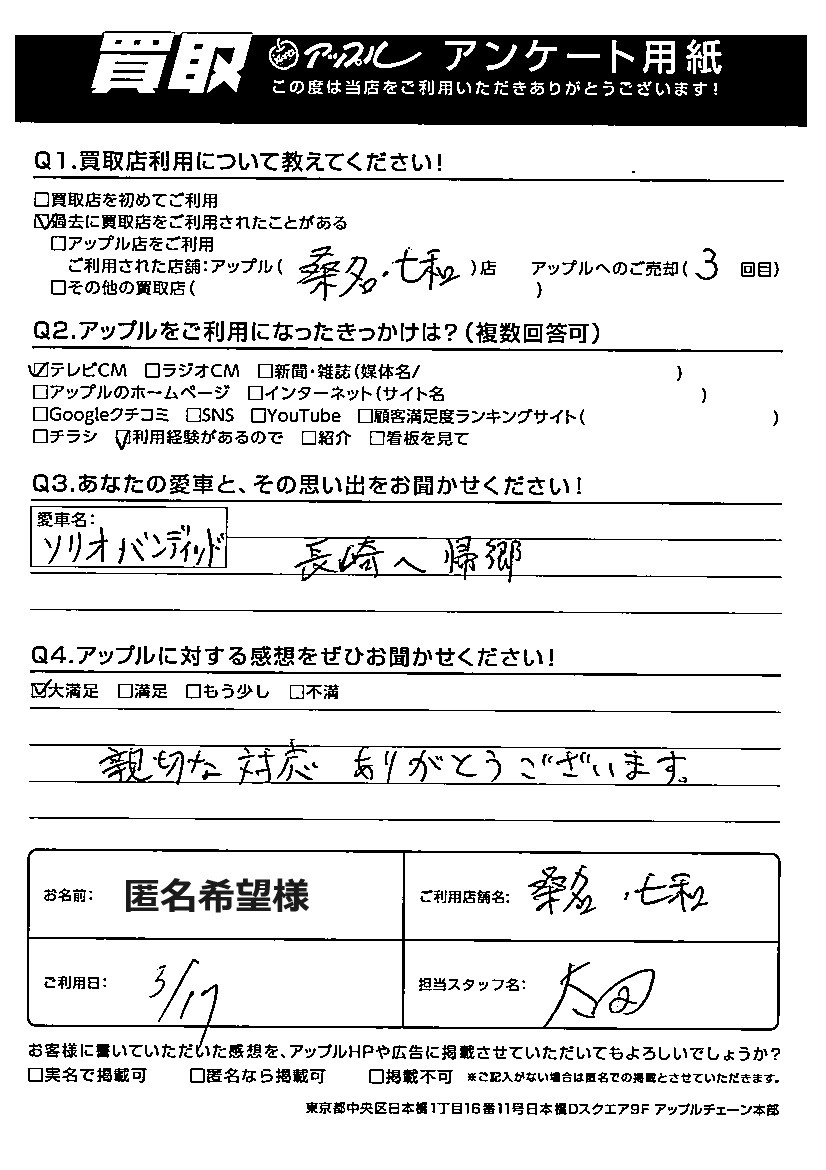 買取 アップル アンケート用紙
この度は当店をご利用いただきありがとうございます!
Q1.買取店利用について教えてください!
□買取店を初めてご利用
☑過去に買取店をご利用されたことがある
□アップル店をご利用
ご利用された店舗:アップル( 桑名・七和 )店 アップルへのご売却( 3 回目)
□その他の買取店( )
Q2.アップルをご利用になったきっかけは?(複数回答可)
☑テレビCM □ラジオCM □新聞・雑誌(媒体名/ )
□アップルのホームページ □インターネット(サイト名 )
□Googleクチコミ □SNS □YouTube □顧客満足度ランキングサイト( )
□チラシ ☑利用経験があるので □紹介 □看板を見て
Q3.あなたの愛車と、その思い出をお聞かせください!
愛車名:
ソリオバンディッド 長崎へ帰郷
Q4.アップルに対する感想をぜひお聞かせください!
☑大満足 □満足 □もう少し □不満
親切な対応 ありがとうございます。
お名前: 匿名希望様 ご利用店舗名: 桑名・七和
ご利用日: 3/17 担当スタッフ名: 太田
お客様に書いていただいた感想を、アップルHPや広告に掲載させていただいてもよろしいでしょうか?
□実名で掲載可 □匿名なら掲載可 □掲載不可 ※ご記入がない場合は匿名での掲載とさせていただきます。
東京都中央区日本橋1丁目16番11号日本橋Dスクエア9F アップルチェーン本部